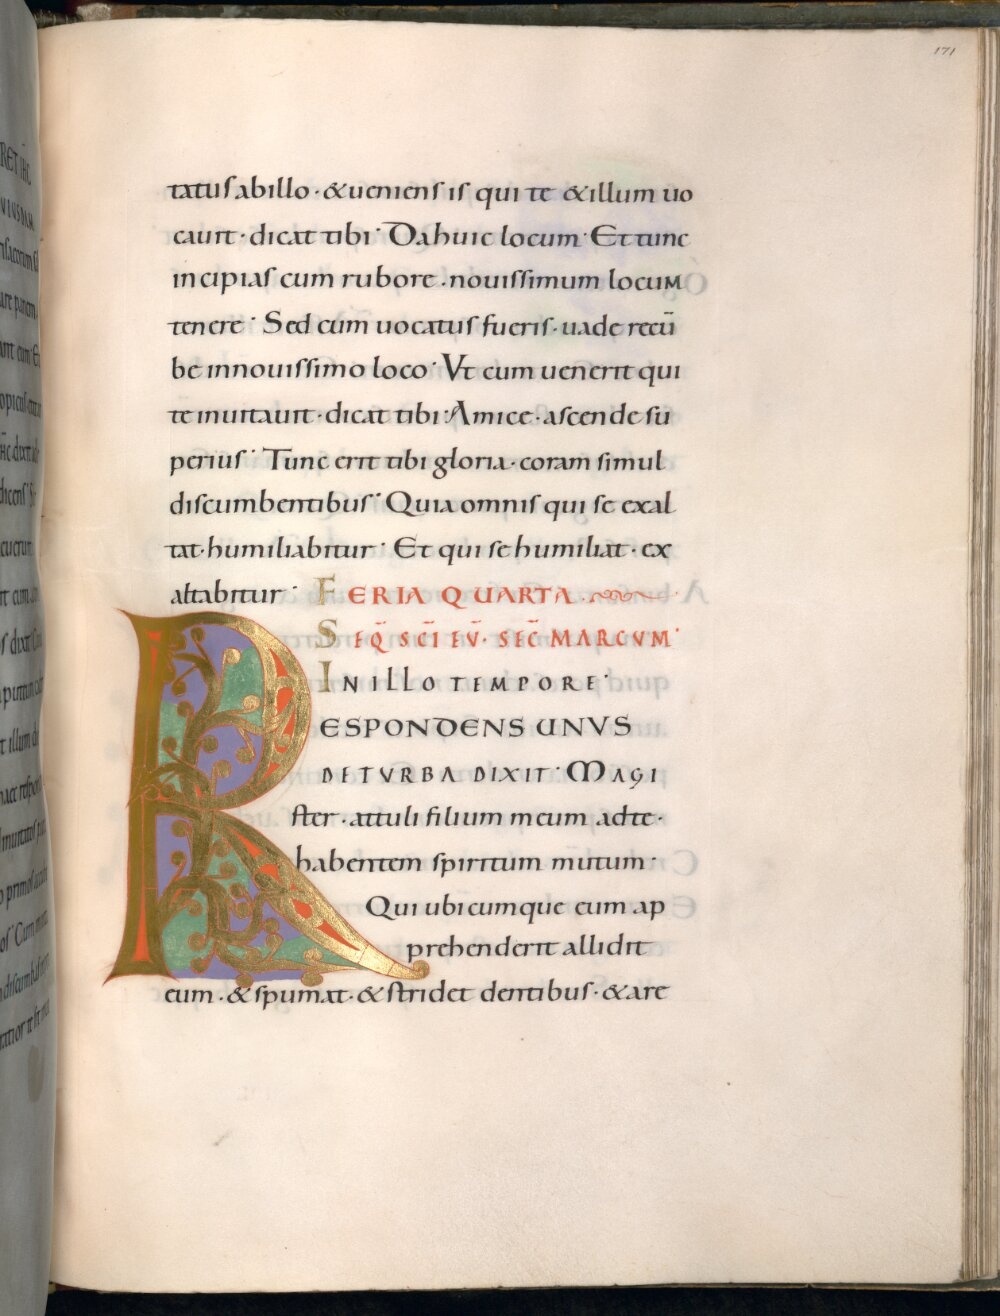 171
tatus ab illo · & ueniens is qui te & illum uo
cauit · dicat tibi · Da huic locum · Et tunc
incipias cum rubore · nouissimum locum
tenere · Sed cum uocatus fueris · uade recū
be in nouissimo loco · Vt cum uenerit qui
te inuitauit · dicat tibi · Amice · ascende su
perius · Tunc erit tibi gloria · coram simul
discumbentibus · Quia omnis qui se exal
tat · humiliabitur · Et qui se humiliat · ex
altabitur · FERIA QUARTA
SEQ̄ SC̄I EV̄ · SEC̄ MARCVM ·
IN ILLO TEMPORE ·
RESPONDENS UNVS
DE TVRBA DIXIT · Magi
ster · attuli filium meum ad te ·
habentem spiritum mutum ·
Qui ubicumque eum ap
prehenderit allidit
eum · & spumat · & stridet dentibus · & are